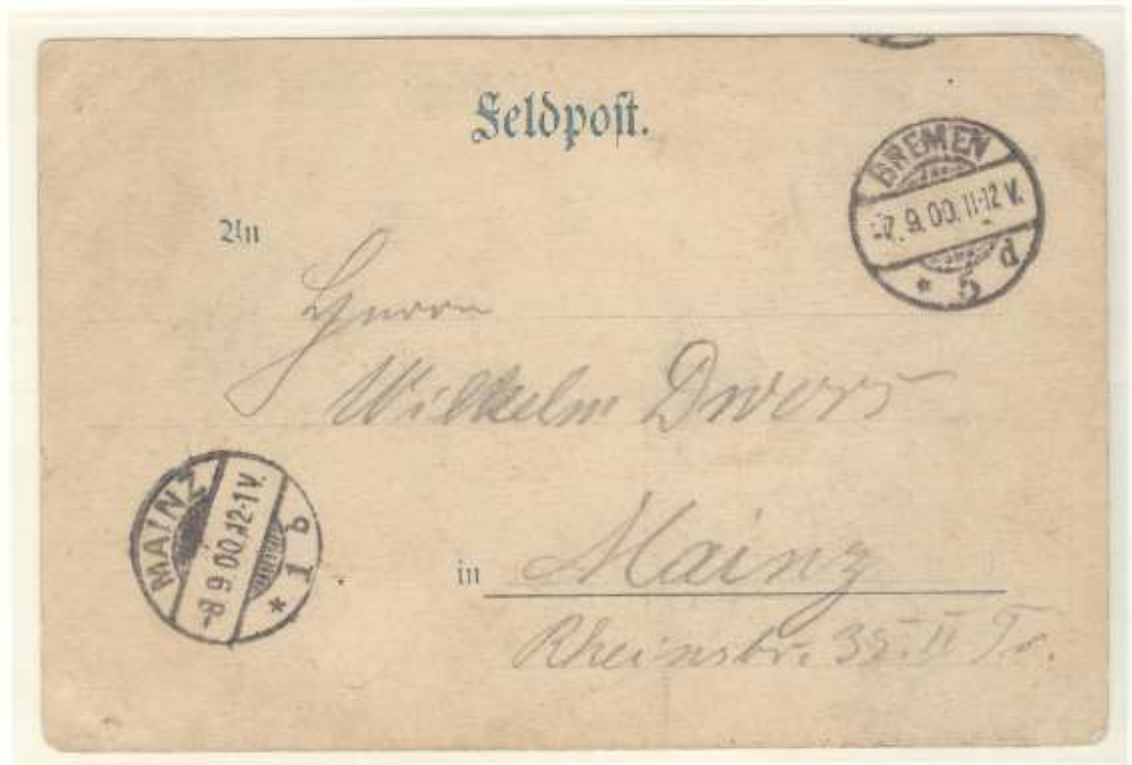 Feldpost.
BREMEN
-7.9.00.11-12 V.
* 5 d
An
Herrn
Wilhelm Dwors
MAINZ
-8 9 00.12-1 V.
* 1 b
in Mainz
Rheinstr. 35. II Tr.